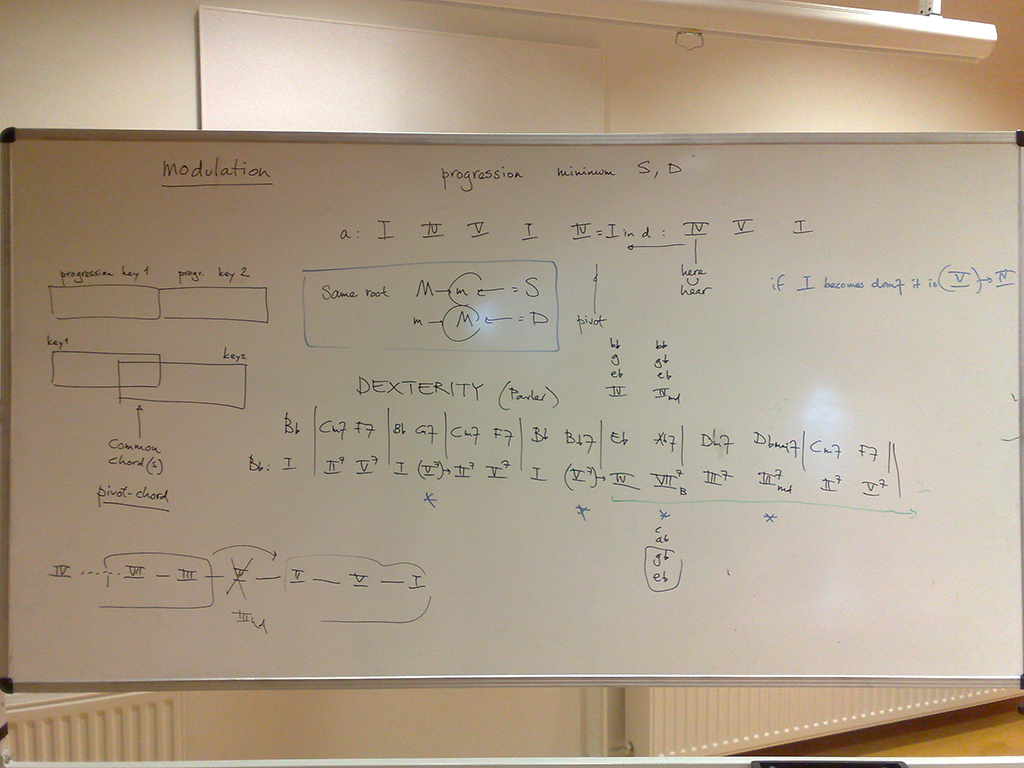 Modulation
progression minimum S, D
a: I IV V I IV = I in d: IV V I
here
hear
pivot
if I becomes dom7 it is (V) → IV
progression key 1 progr. key 2
key1 key2
Common
chord(s)
pivot-chord
Same root M – m ← = S
m – M ← = D
bb bb
g gb
eb eb
IV IVmd
DEXTERITY (Parker)
Bb | Cm7 F7 | Bb G7 | Cm7 F7 | Bb Bb7 | Eb Ab7 | Dm7 Dbmaj7 | Cm7 F7 ||
Bb: I II7 V7 I (V7)→ II7 V7 I (V7)→ IV VII7B III7 III7md II7 V7
* * * *
c
ab
gb
eb
IV VII – III – – – V – I
IIImd